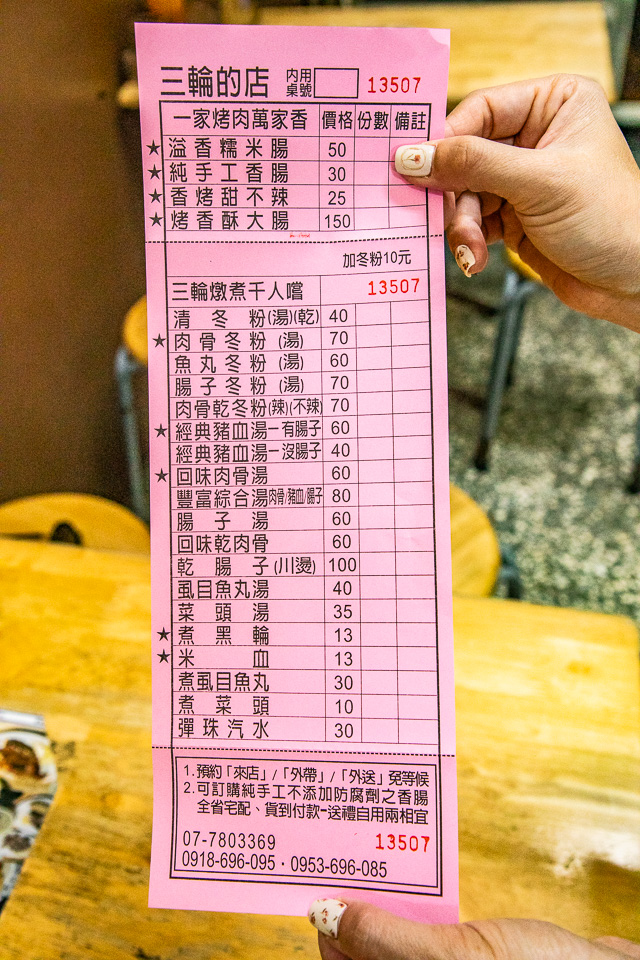 三輪的店 內用桌號 13507
一家烤肉萬家香 價格 份數 備註
★ 溢香糯米腸 50
★ 純手工香腸 30
★ 香烤甜不辣 25
★ 烤香酥大腸 150
加冬粉10元
三輪燉煮千人嚐 13507
清冬粉(湯)(乾) 40
★ 肉骨冬粉(湯) 70
魚丸冬粉(湯) 60
腸子冬粉(湯) 70
肉骨乾冬粉(辣)(不辣) 70
★ 經典豬血湯-有腸子 60
經典豬血湯-沒腸子 40
★ 回味肉骨湯 60
豐富綜合湯肉骨/豬血/腸子 80
腸子湯 60
回味乾肉骨 60
乾腸子(川燙) 100
虱目魚丸湯 40
菜頭湯 35
★ 煮黑輪 13
★ 米血 13
煮虱目魚丸 30
煮菜頭 10
彈珠汽水 30
1.預約「來店」/「外帶」/「外送」免等候
2.可訂購純手工不添加防腐劑之香腸
全省宅配、貨到付款-送禮自用兩相宜
07-7803369 13507
0918-696-095·0953-696-085